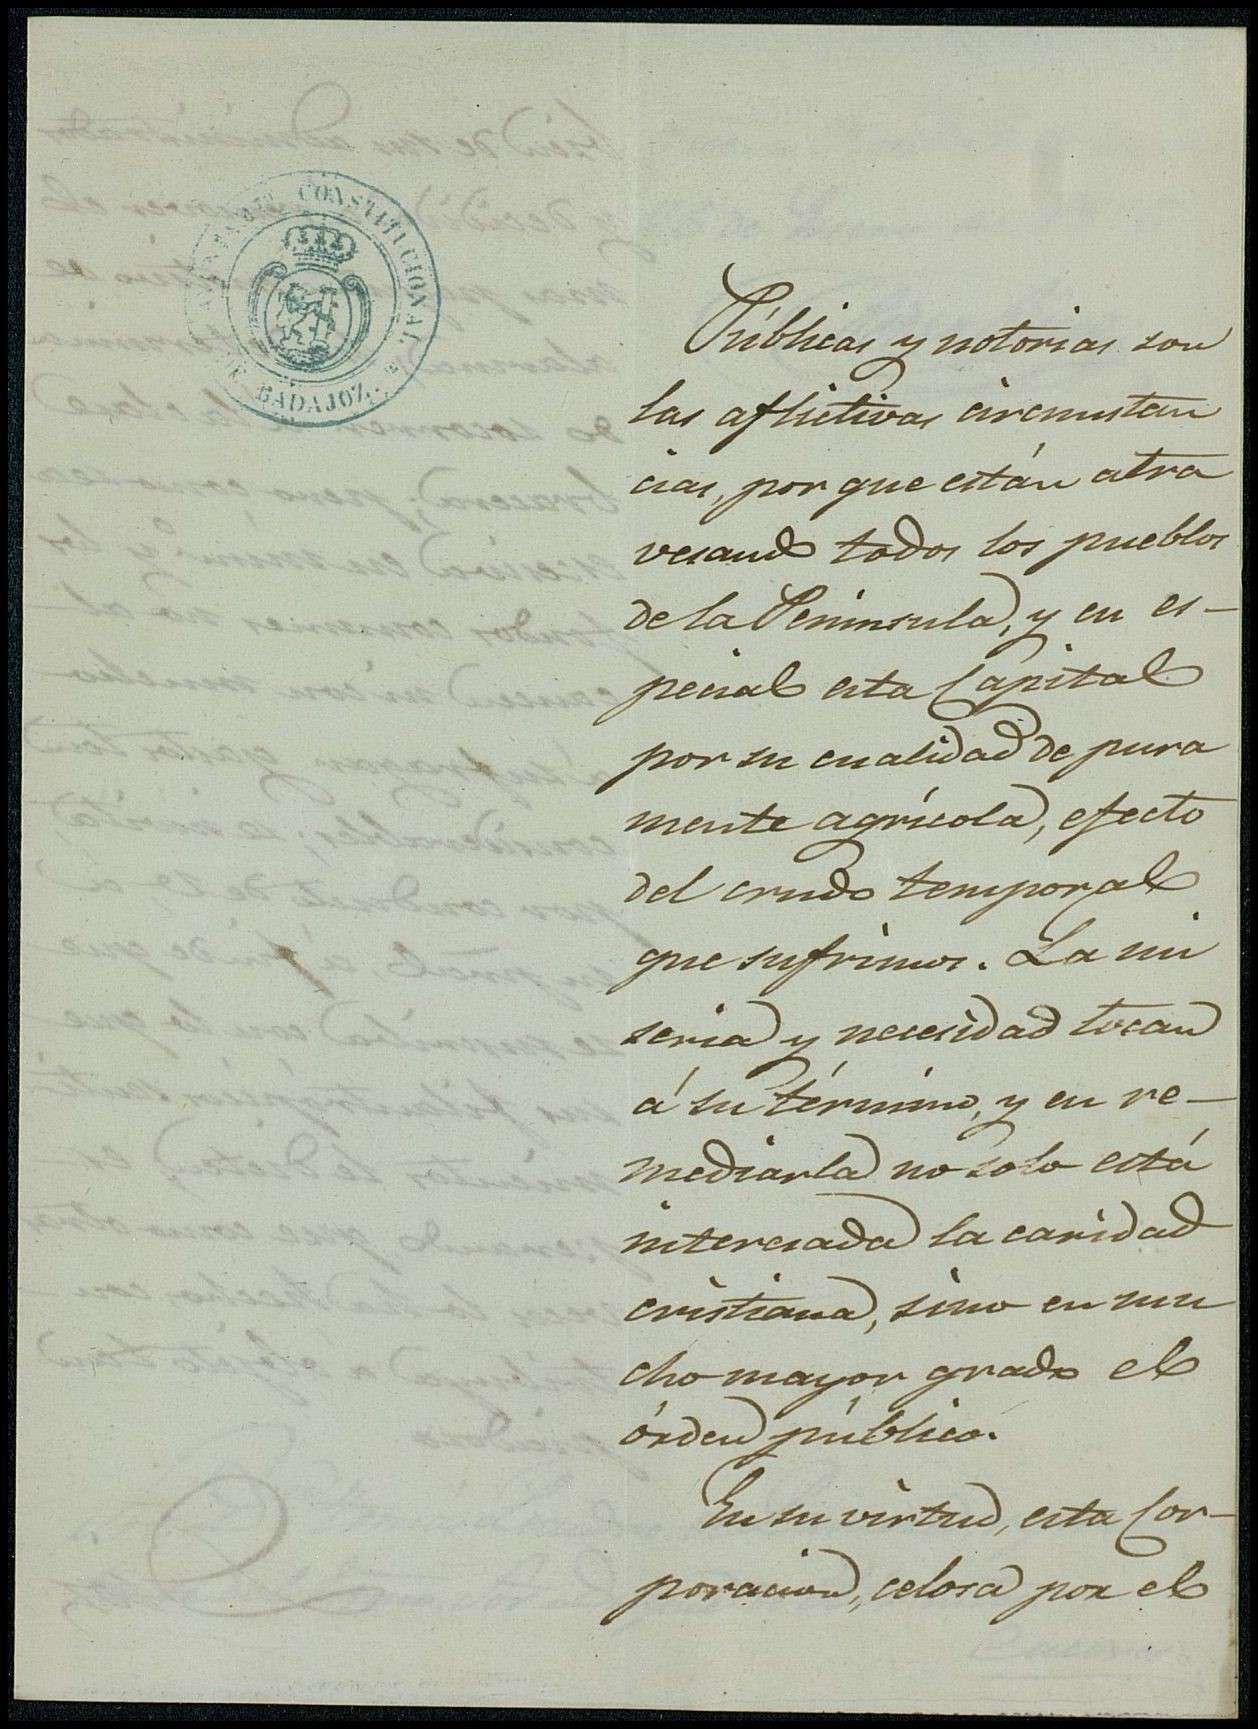 AYUNTAMIENTO CONSTITUCIONAL
DE BADAJOZ.
Públicas y notorias son
las aflictivas circunstan
cias, por que están atra
vesando todos los pueblos
de la Península, y en es-
pecial esta Capital
por su cualidad de pura
mente agrícola, efecto
del crudo temporal
que sufrimos. La mi
seria y necesidad tocan
á su término, y en re-
mediarla no solo está
interesada la caridad
cristiana, sino en mu
cho mayor grado el
órden público.
En su virtud, esta Cor-
poracion, celosa por el